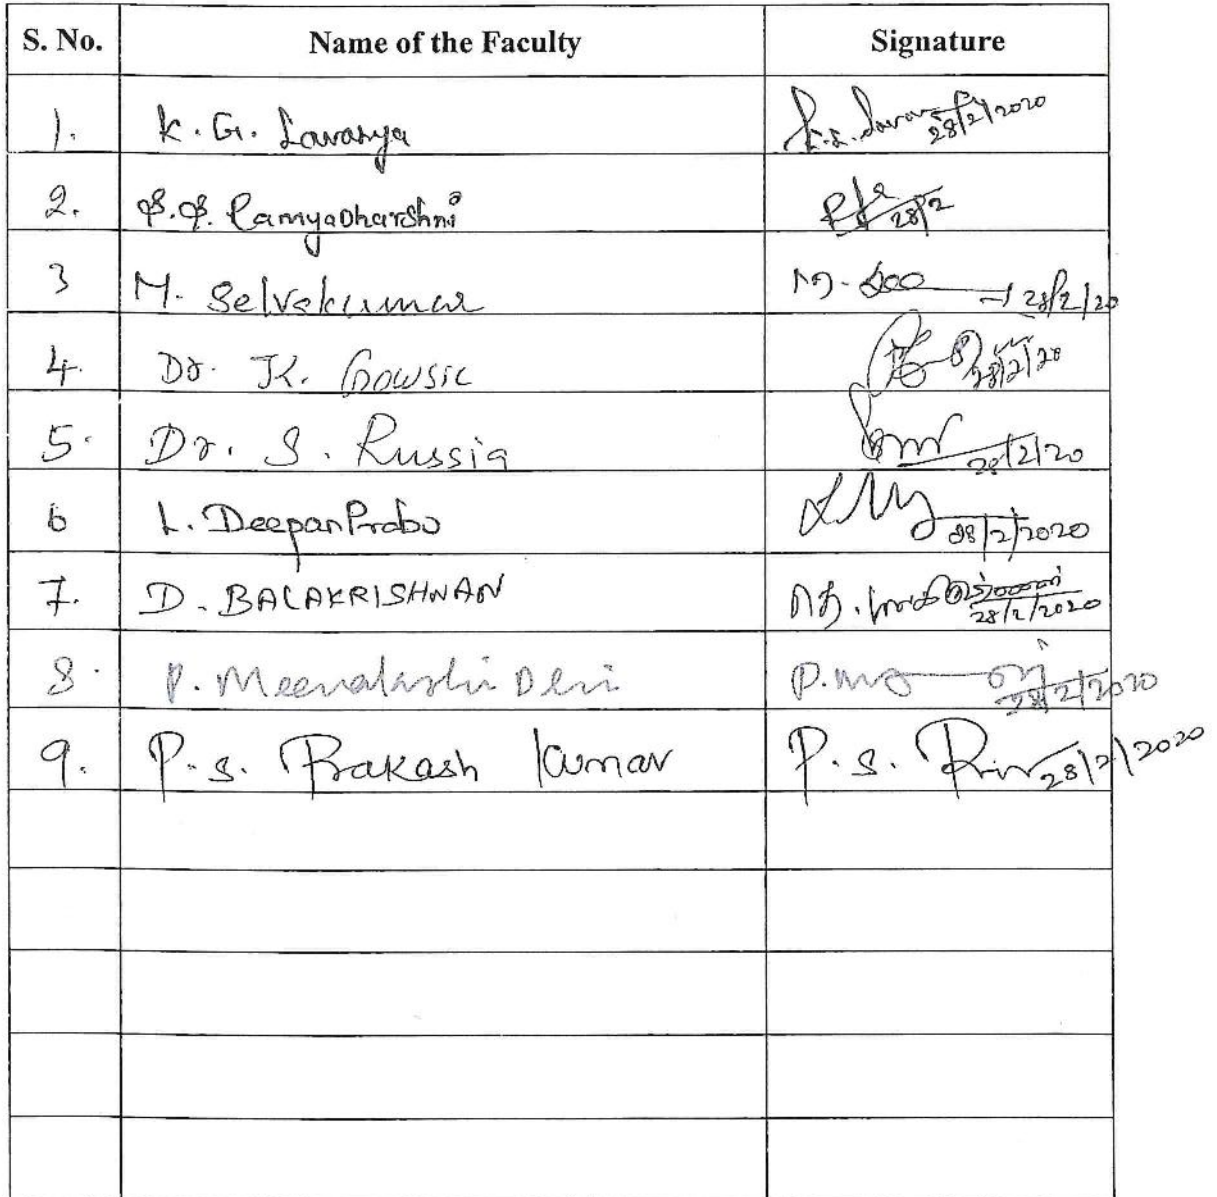 S. No. Name of the Faculty Signature
1. K. G. Lavanya 28/2/2020
2. S. S. RamyaDharshni 28/2
3 M. Selvakumar 28/2/20
4. Dr. K. Gowsic 28/2/20
5. Dr. S. Russia 28/2/20
6 L. DeepanPrabu 28/2/2020
7. D. BALAKRISHNAN 28/2/2020
8. P. Meenakshi Devi 28/2/2020
9. P. S. Prakash Kumar P. S. 28/2/2020